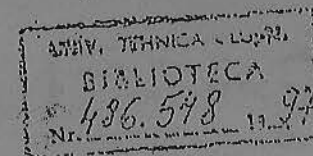 UNIV. TEHNICA CLUJ-N.
BIBLIOTECA
Nr. 486.548